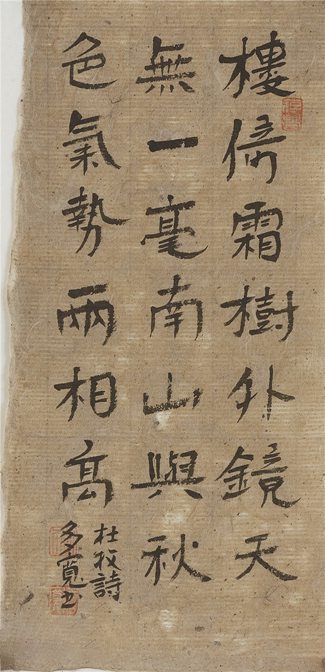 樓倚霜樹外鏡天
無一毫南山與秋
色氣勢兩相高
杜牧詩
多寬書